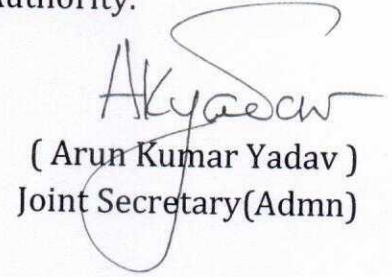 Authority.
AKyadav
( Arun Kumar Yadav )
Joint Secretary(Admn)